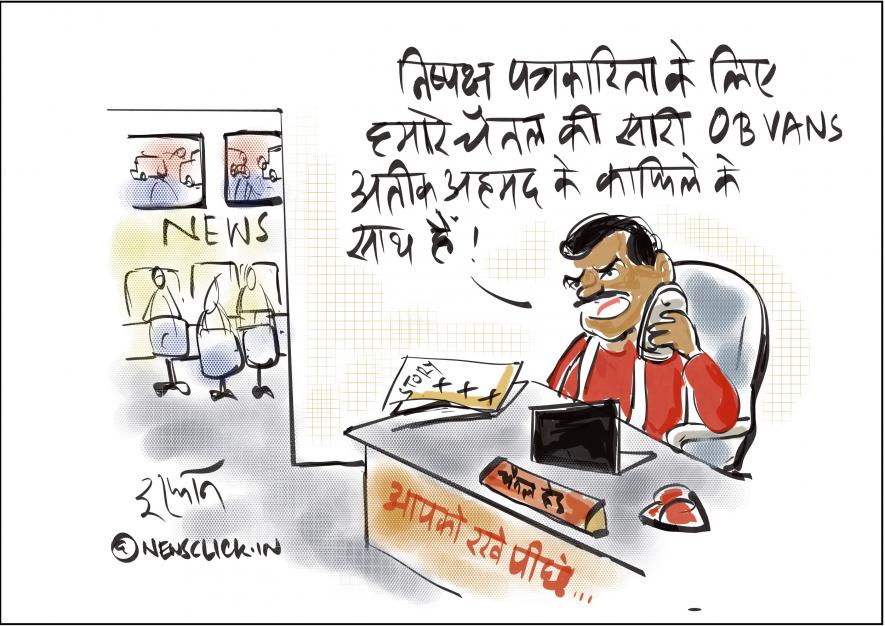 निष्पक्ष पत्रकारिता के लिए
हमारे चैनल की सारी OB VANS
अतीक अहमद के काफिले के
साथ हैं!
NEWS
STORY
x x x
चैनल हेड
आपको रखे पीछे...
इरफ़ान
© NEWSCLICK.IN